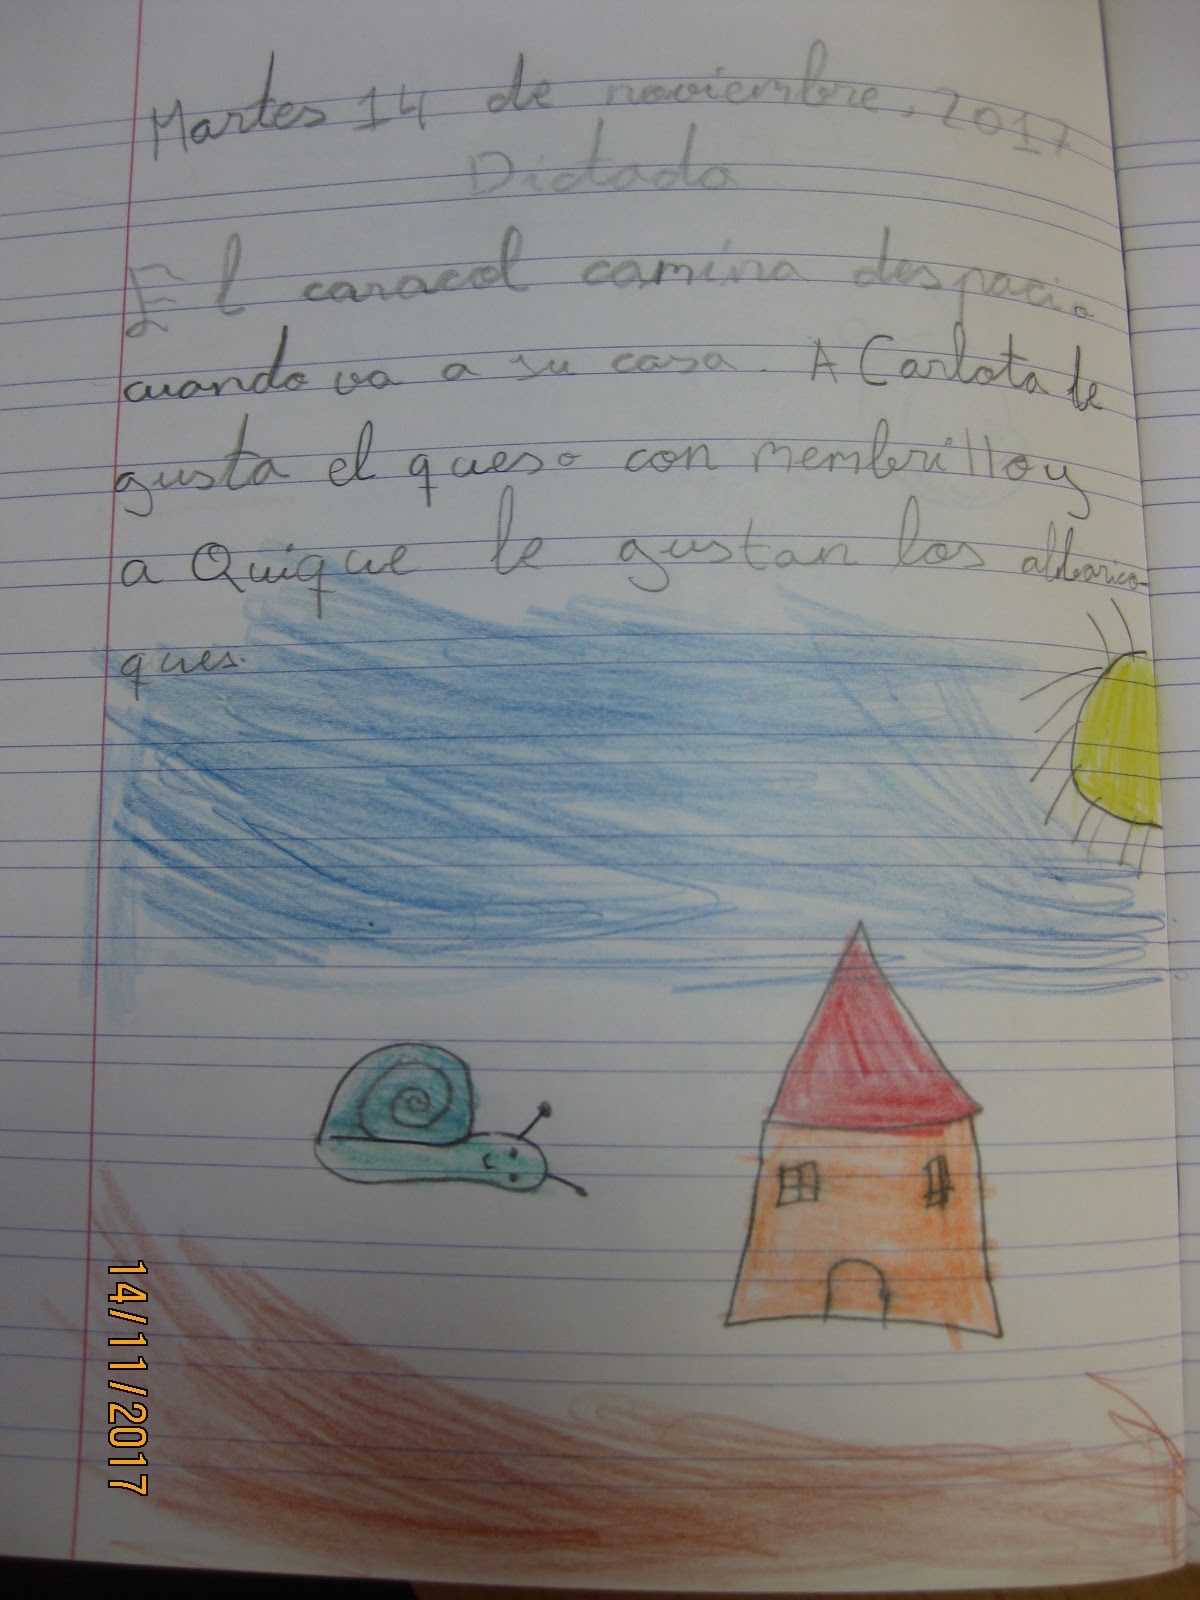 Martes 14 de noviembre, 2017
Dictado
El caracol camina despacio
cuando va a su casa. A Carlota le
gusta el queso con membrillo y
a Quique le gustan los albarico-
ques.
14/11/2017